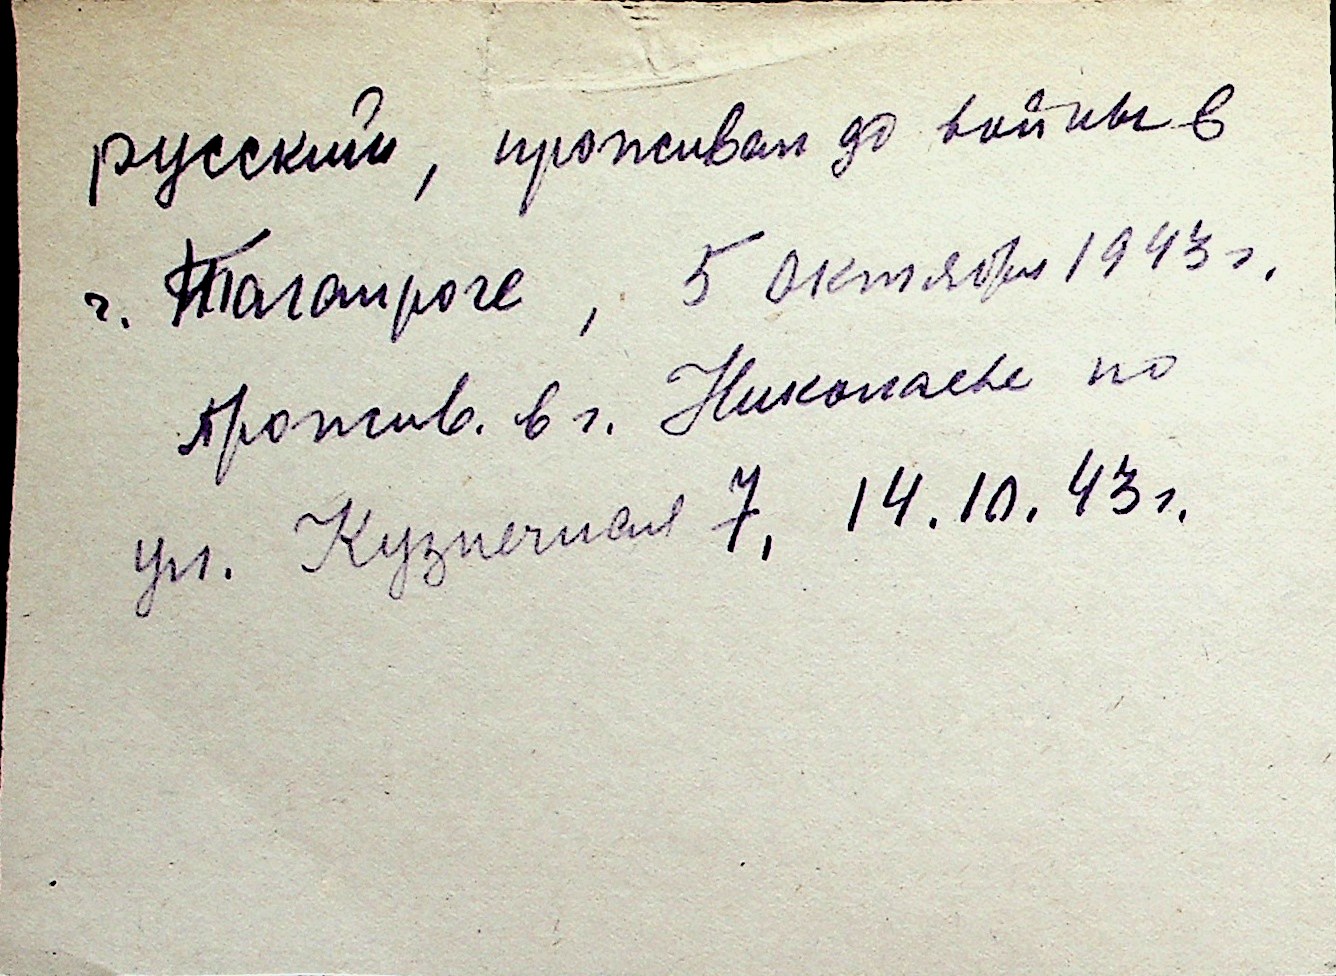 русский, проживал до войны в
г. Таганроге, 5 октября 1943 г.
прожив. в г. Николаеве по
ул. Кузнечная 7, 14.10.43 г.